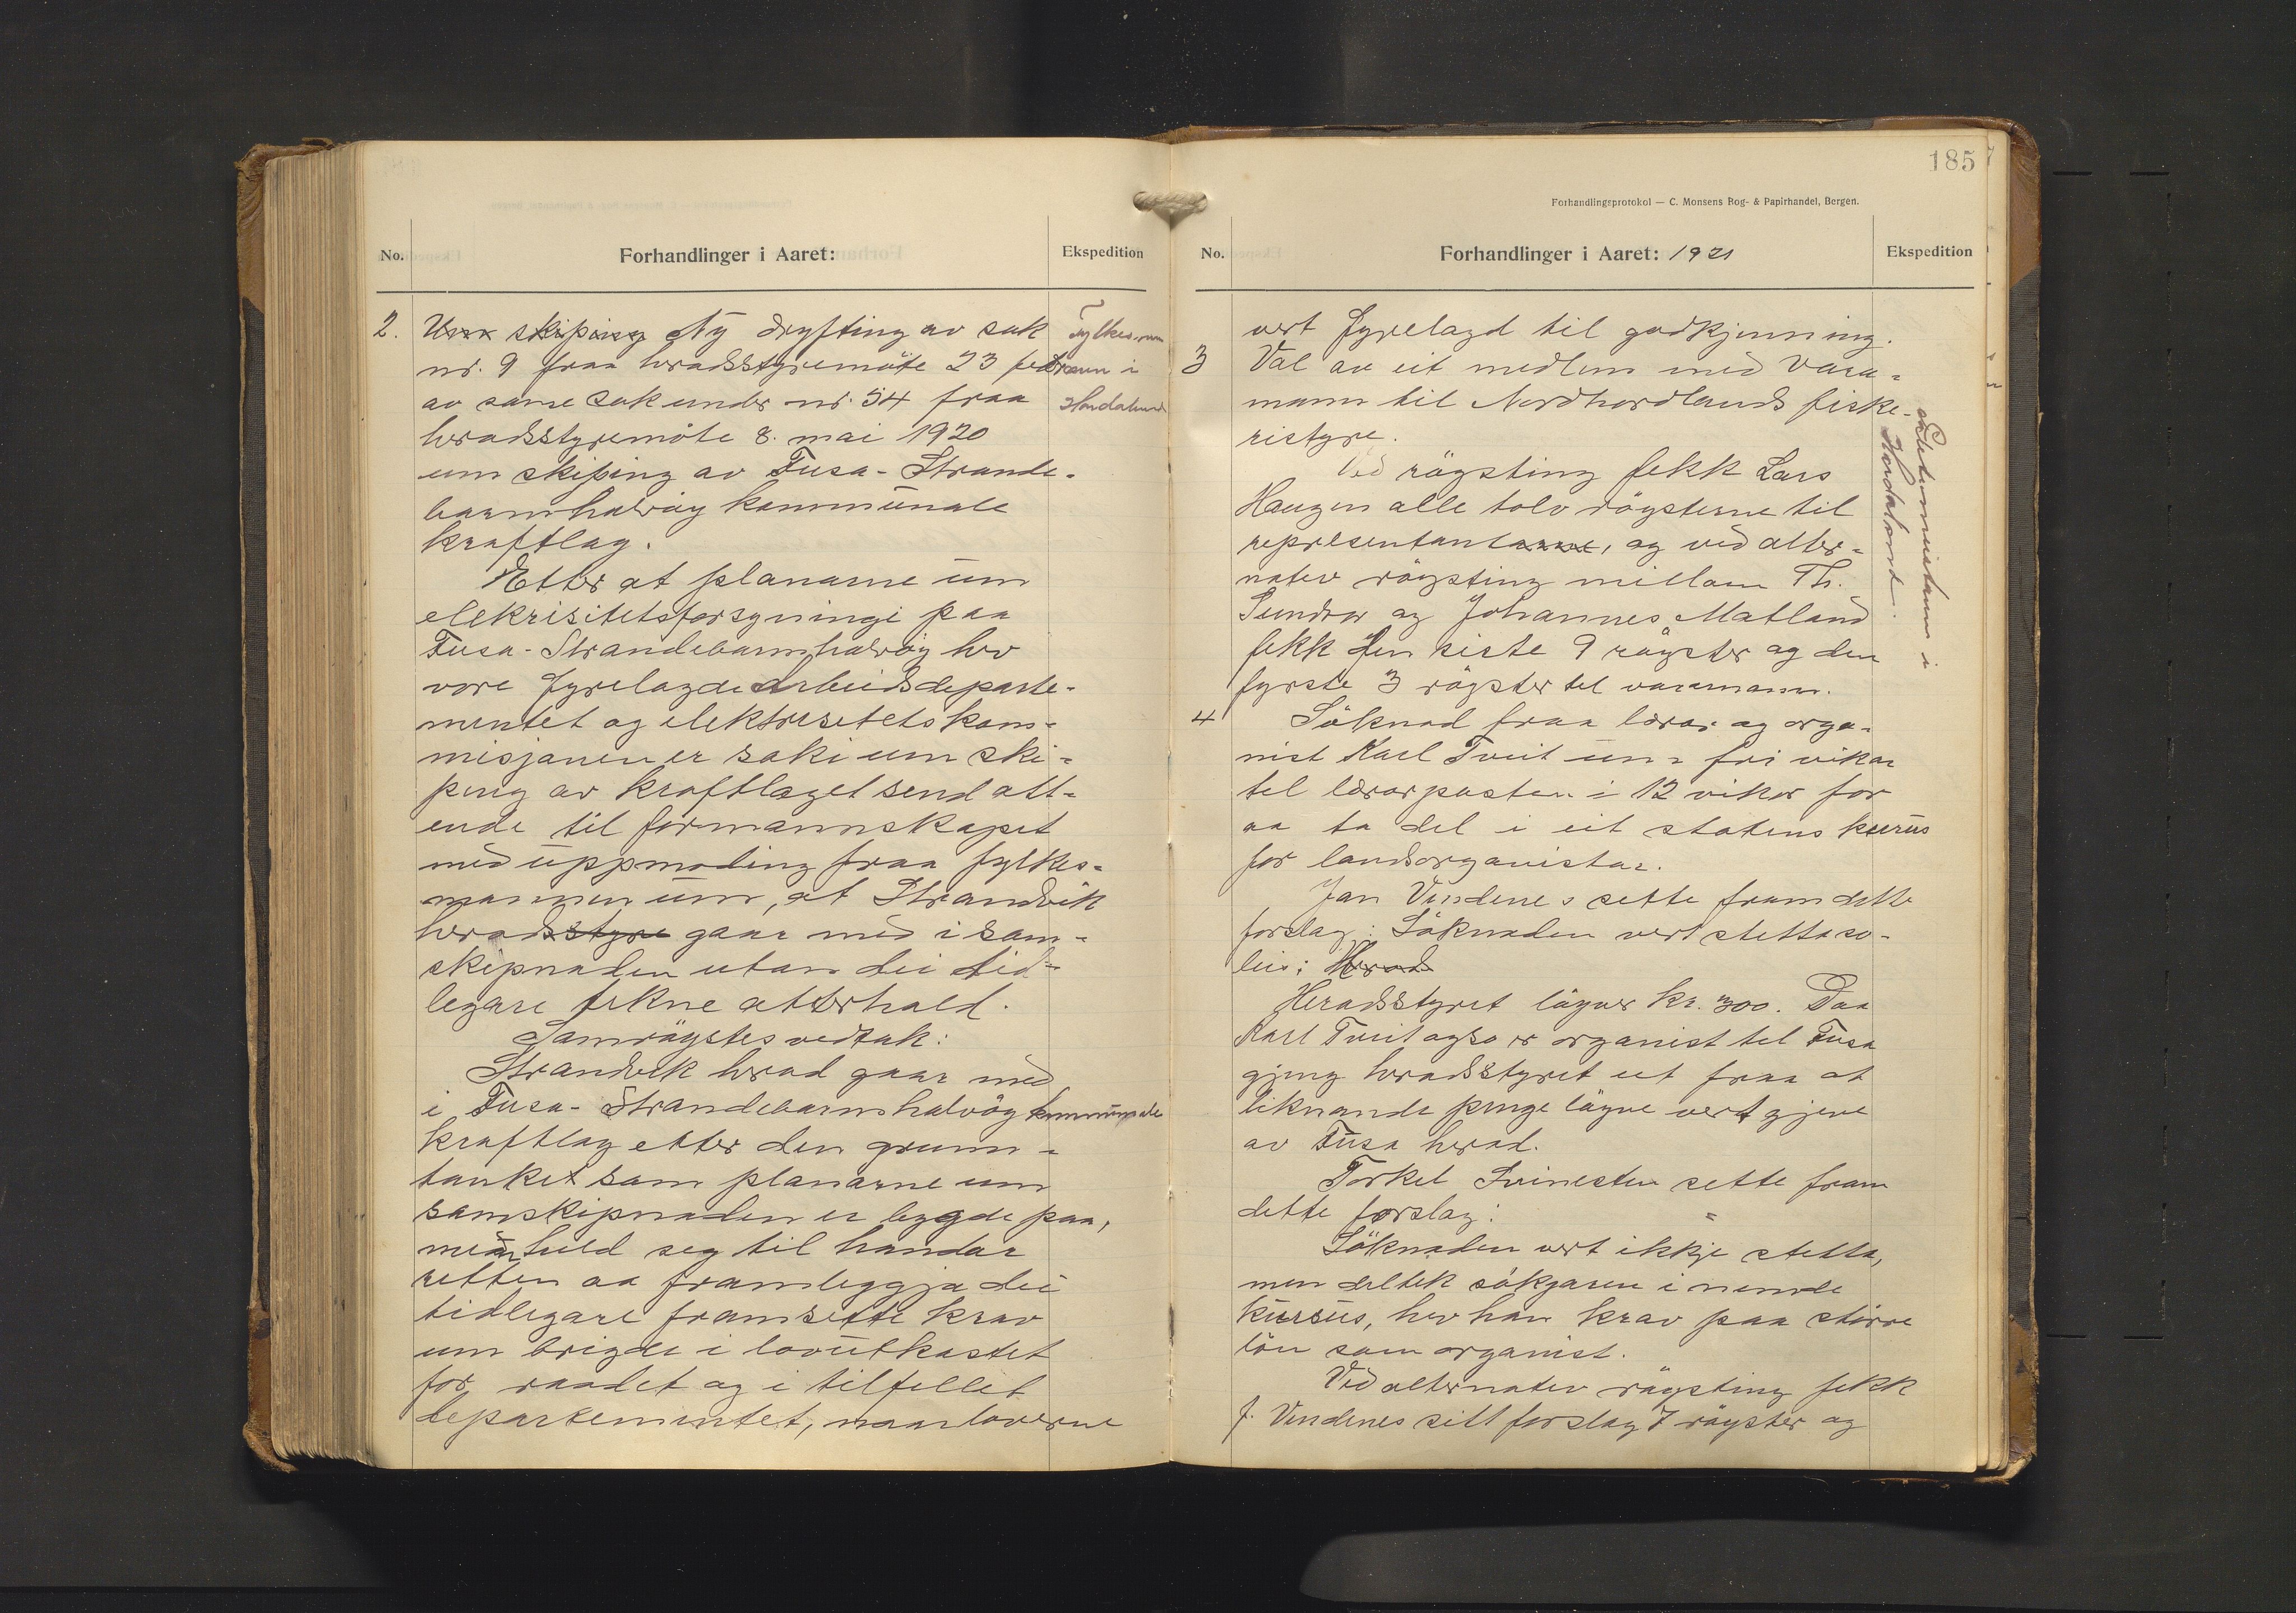 No.
Forhandlinger i Aaret:
Ekspedition
2. Um skiping Ny dryfting av sak
nr. 9 fraa heradsstyremöte 23 febr
av same sak under nr. 54 fraa
heradsstyremöte 8. mai 1920
um skiping av Fusa-Strande-
barmhalvöy kommunale
kraftlag.
Etter at planarne um
elekrisitetsforsyningi paa
Fusa-Strandebarmhalvöy hev
vore fyrelagde Arbeidsdeparte-
mentet og elektrisitetskom-
misjonen er saki um ski-
ping av kraftlaget send att-
ende til formannskapet
med uppmoding fraa fylkes-
mannen um, at Strandvik
heradsstyre gaar med i sam-
skipnaden utan dei tid-
legare tekne atterhald.
Samröystes vedtak:
Strandvik herad gaar med
i Fusa-Strandebarmhalvöy kommunale
kraftlag etter den grunn-
tanken som planarne um
samskipnaden er bygde paa,
men held seg til handar
retten aa framleggja dei
tidlegare framsette krav
um brigde i lovutkastet
for raadet og i tilfellet
departementet, naar loverne
Fylkesmannen i
Hordaland
185
Forhandlingsprotokol — C. Monsens Bog- & Papirhandel, Bergen.
No.
Forhandlinger i Aaret: 1921
Ekspedition
vert fyrelagd til godkjenning.
3 Val av eit medlem med vara-
mann til Nordhordlands fiske-
ristyre.
Ved röysting fekk Lars
Haugen alle tolv röysterne til
representant, og ved alter-
nativ röysting millom Th.
Sundvor og Johannes Matland
fekk den siste 9 röyster og den
fyrste 3 röyster til varamann.
4 Söknad fraa lærar og orga-
nist Karl Tveit um fri vikar
til lærarposten i 12 vikor for
aa ta del i eit statens kursus
for landsorganistar.
Jan Vindenes sette fram dette
forslag: Söknaden vert stetta so-
leis: Herad
Heradsstyret löyver kr. 300. Daa
Karl Tveit ogso er organist til Fusa
gjeng heradsstyret ut fraa at
liknande pengelöyve vert gjeve
av Fusa herad.
Torkel Svinesten sette fram
dette forslag:
Söknaden vert ikkje stetta,
men deltek sökjaren i nemde
kursus, hev han krav paa större
lön som organist.
Ved alternativ röysting fekk
J. Vindenes sitt forslag 7 röyster og
Hordaland.